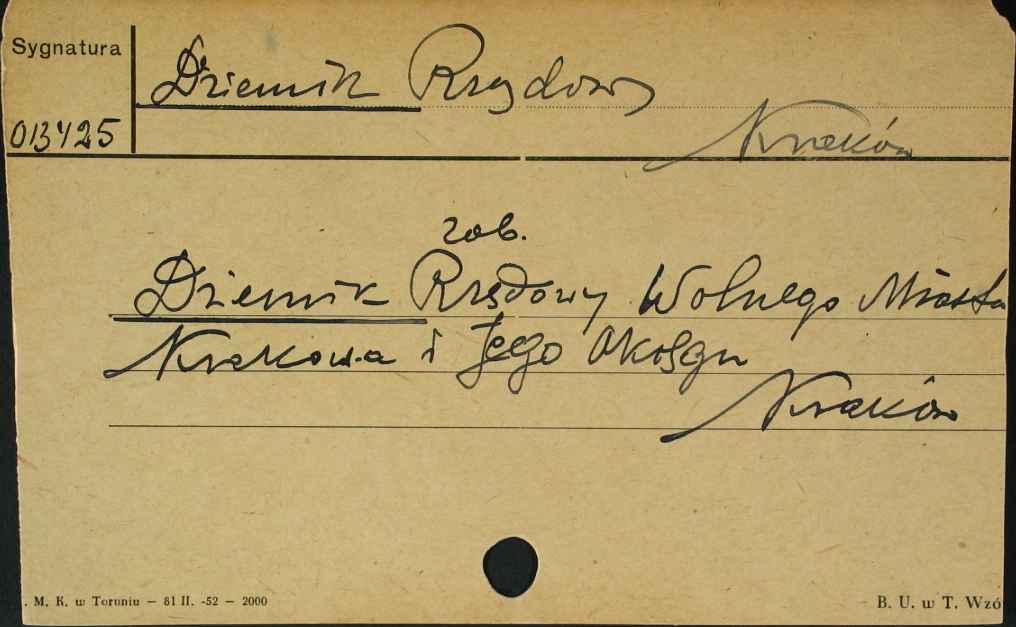 Sygnatura
Dziennik Rządowy
013425
Kraków
zob.
Dziennik Rządowy Wolnego Miasta
Krakowa i Jego Okolgu
Kraków
. M. K. w Toruniu — 81 II. -52 — 2000
B. U. w T. Wzó